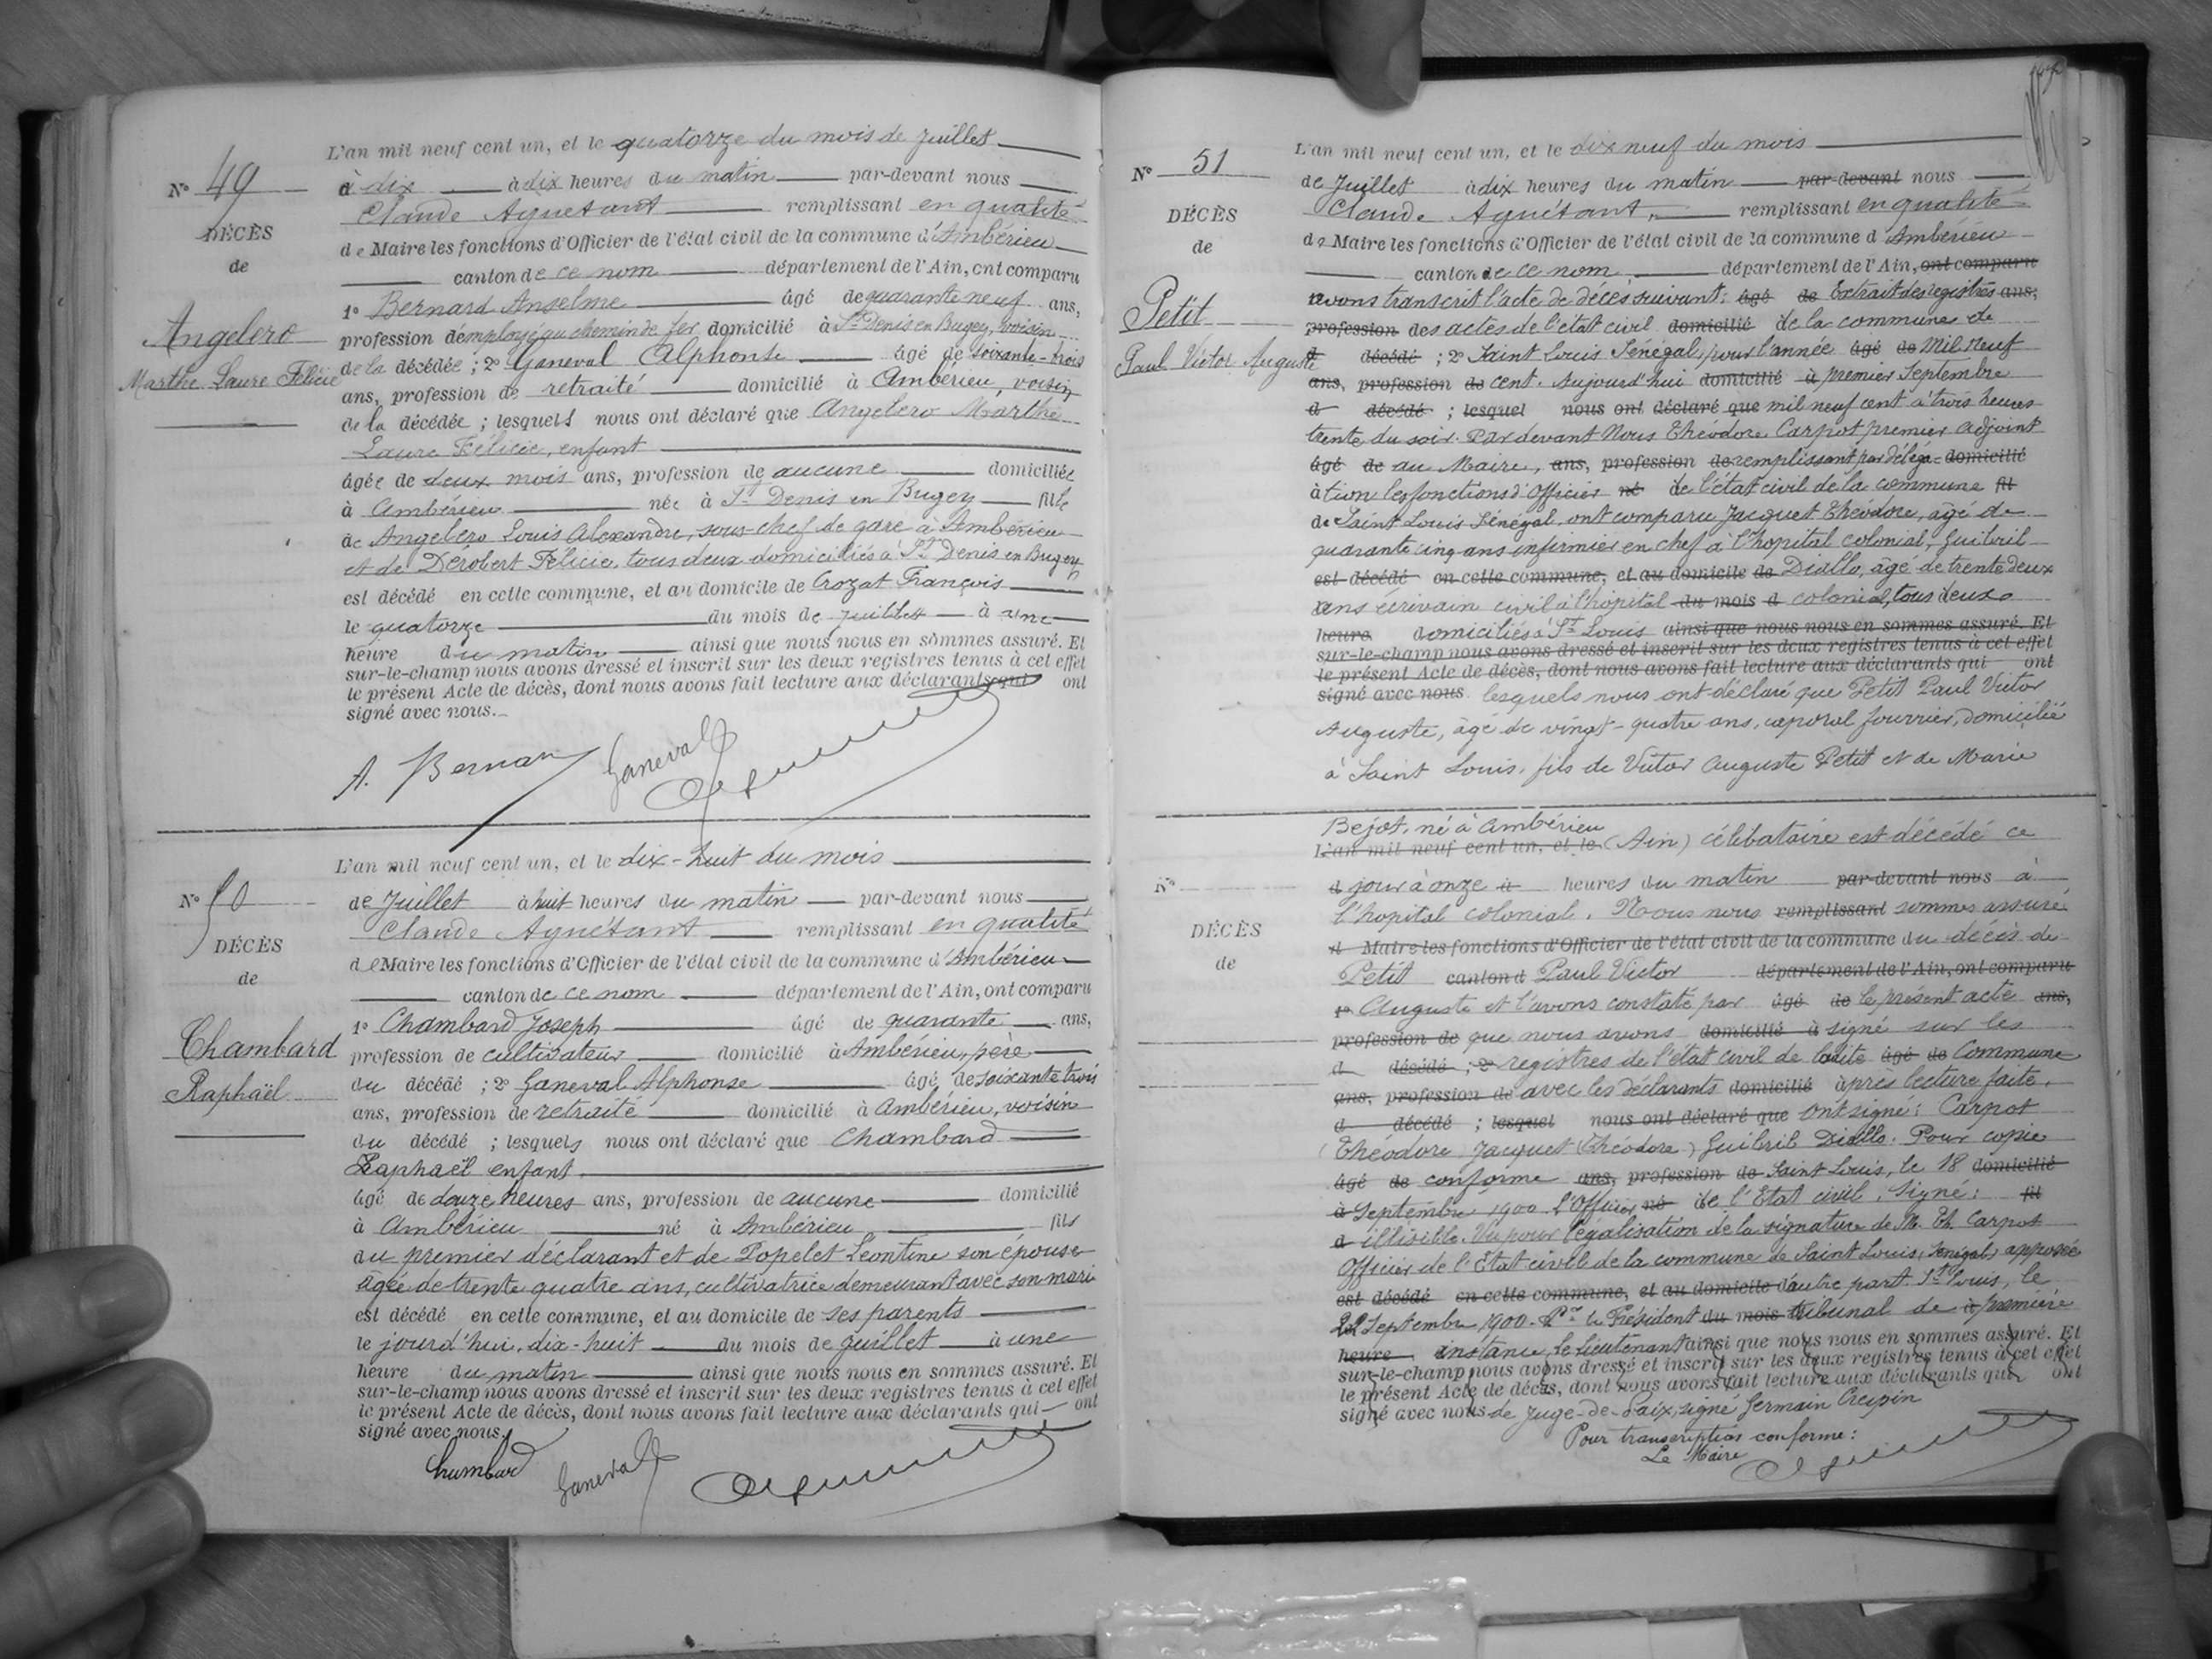 L'an mil neuf cent un, et le quatorze du mois de Juillet
N° 49
à dix à dix heures du matin par-devant nous
Claude Aguétant remplissant en qualité
DÉCÈS
de Maire les fonctions d'Officier de l'état civil de la commune d'Ambérieu
de
canton de ce nom département de l'Ain, ont comparu
1° Bernard Anselme âgé de quarante neuf ans,
Angelero
profession d'employé au chemin de fer domicilié à St Denis en Bugey, voisin
Marthe Laure Félicie
de la décédée ; 2° Ganeval Alphonse âgé de soixante-trois
ans, profession de retraité domicilié à Ambérieu, voisin
de la décédée ; lesquels nous ont déclaré que Angelero Marthe
Laure Félicie, enfant
âgée de deux mois ans, profession de aucune domiciliée
à Ambérieu née à St Denis en Bugey fille
de Angelero Louis Alexandre, sous-chef de gare à Ambérieu
et de Dérobert Félicie, tous deux domiciliés à St Denis en Bugey
est décédé en cette commune, et au domicile de Crozat François
le quatorze du mois de juillet à une
heure du matin ainsi que nous nous en sommes assuré. Et
sur-le-champ nous avons dressé et inscrit sur les deux registres tenus à cet effet
le présent Acte de décès, dont nous avons fait lecture aux déclarants qui ont
signé avec nous.
A. Bernard Ganeval
L'an mil neuf cent un, et le dix-huit du mois
N° 50
de Juillet à huit heures du matin par-devant nous
Claude Aguétant remplissant en qualité
DÉCÈS
de Maire les fonctions d'Officier de l'état civil de la commune d'Ambérieu
de
canton de ce nom département de l'Ain, ont comparu
1° Chambard Joseph âgé de quarante ans,
Chambard
profession de cultivateur domicilié à Ambérieu, père
Raphaël
du décédé ; 2° Ganeval Alphonse âgé de soixante trois
ans, profession de retraité domicilié à Ambérieu, voisin
du décédé ; lesquels nous ont déclaré que Chambard
Raphaël enfant
âgé de douze heures ans, profession de aucune domicilié
à Ambérieu né à Ambérieu fils
du premier déclarant et de Popelet Léontine son épouse
âgée de trente quatre ans, cultivatrice demeurant avec son mari
est décédé en cette commune, et au domicile de ses parents
le jourd'hui, dix-huit du mois de juillet à une
heure du matin ainsi que nous nous en sommes assuré. Et
sur-le-champ nous avons dressé et inscrit sur les deux registres tenus à cet effet
le présent Acte de décès, dont nous avons fait lecture aux déclarants qui ont
signé avec nous.
Chambard Ganeval
L'an mil neuf cent un, et le dix neuf du mois
N° 51
de Juillet à dix heures du matin par-devant nous
Claude Aguétant, remplissant en qualité
DÉCÈS
de Maire les fonctions d'Officier de l'état civil de la commune d'Ambérieu
de
canton de ce nom département de l'Ain, ont comparu
Petit
avons transcrit l'acte de décès suivant: âgé de Extrait des registres ans,
profession des actes de l'état civil domicilié de la commune de
Paul Victor Auguste
d décédé ; 2° Saint Louis Sénégal, pour l'année âgé de Mil neuf
ans, profession de cent. Aujourd'hui domicilié à premier Septembre
d décédé ; lesquel nous ont déclaré que mil neuf cent à trois heures
trente du soir. Par devant Nous Théodore Carpot premier adjoint
âgé de au Maire, ans, profession de remplissant par déléga- domicilié
à tion les fonctions d'Officier né de l'état civil de la commune fil
de Saint Louis Sénégal, ont comparu Jacquet Théodore, âgé de
quarante cinq ans infirmier en chef à l'hôpital colonial, Guibril
est décédé en cette commune, et au domicile de Diallo, âgé de trente deux
ans écrivain civil à l'hôpital du mois d colonial, tous deux
heure domiciliés à St Louis ainsi que nous nous en sommes assuré. Et
sur-le-champ nous avons dressé et inscrit sur les deux registres tenus à cet effet
le présent Acte de décès, dont nous avons fait lecture aux déclarants qui ont
signé avec nous lesquels nous ont déclaré que Petit Paul Victor
Auguste, âgé de vingt-quatre ans, caporal fourrier, domicilié
à Saint Louis, fils de Victor Auguste Petit et de Marie
Bejot, né à Ambérieu
L'an mil neuf cent un, et le (Ain) célibataire est décédé ce
N°
d jour à onze à heures du matin par-devant nous à
l'hôpital colonial. Nous nous remplissant sommes assuré
DÉCÈS
d Maire les fonctions d'Officier de l'état civil de la commune du décès de
de
Petit canton d Paul Victor département de l'Ain, ont comparu
1° Auguste et l'avons constaté par âgé de le présent acte ans,
profession de que nous avons domicilié à signé sur les
d décédé ; 2° registres de l'état civil de ladite âgé de Commune
ans, profession de avec les déclarants domicilié après lecture faite.
d décédé ; lesquel nous ont déclaré que Ont signé: Carpot
(Théodore Jacquet (Théodore) Guibril Diallo. Pour copie
âgé de conforme ans, profession de Saint Louis, le 18 domicilié
à Septembre 1900 l'Officier né de l'Etat civil. Signé: fil
d illisible. Vu pour légalisation de la signature de M. Th. Carpot
Officier de l'Etat civil de la commune de Saint Louis (Sénégal) apposée
est décédé en cette commune, et au domicile d'autre part. St Louis, le
Septembre 1900. Pr le Président du mois Tribunal de à première
heure instance, le Lieutenant ainsi que nous nous en sommes assuré. Et
sur-le-champ nous avons dressé et inscrit sur les deux registres tenus à cet effet
le présent Acte de décès, dont nous avons fait lecture aux déclarants qui ont
signé avec nous de Juge-de-Paix, signé Germain Crespin
Pour transcription conforme:
Le Maire